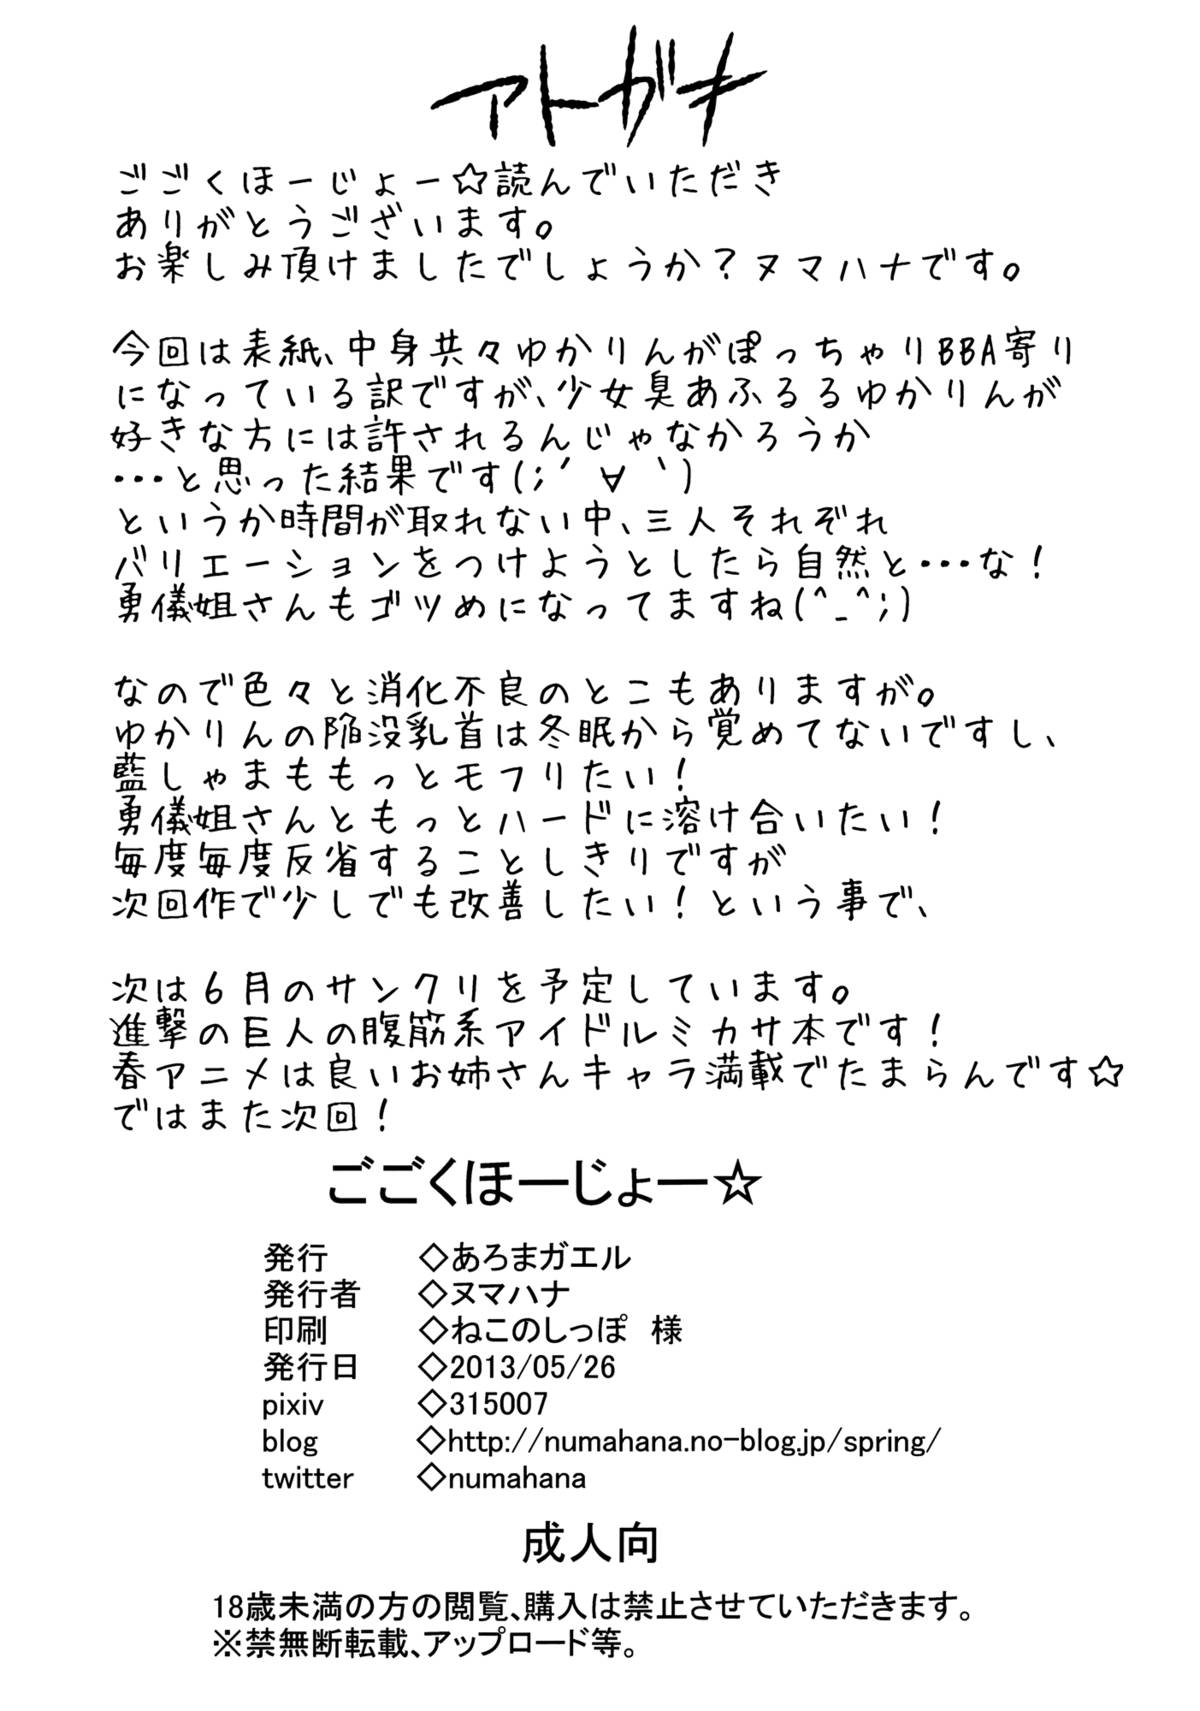 アトガキ
ごごくほーじょー☆読んでいただき
ありがとうございます。
お楽しみ頂けましたでしょうか？ヌマハナです。
今回は表紙、中身共々ゆかりんがぽっちゃりBBA寄り
になっている訳ですが、少女臭あふるるゆかりんが
好きな方には許されるんじゃなかろうか
・・・と思った結果です(;´∀｀)
というか時間が取れない中、三人それぞれ
バリエーションをつけようとしたら自然と・・・な！
勇儀姐さんもゴツめになってますね(^_^;)
なので色々と消化不良のとこもありますが。
ゆかりんの陥没乳首は冬眠から覚めてないですし、
藍しゃまももっとモフりたい！
勇儀姐さんともっとハードに溶け合いたい！
毎度毎度反省することしきりですが
次回作で少しでも改善したい！という事で、
次は６月のサンクリを予定しています。
進撃の巨人の腹筋系アイドルミカサ本です！
春アニメは良いお姉さんキャラ満載でたまらんです☆
ではまた次回！
ごごくほーじょー☆
発行 ◇あろまガエル
発行者 ◇ヌマハナ
印刷 ◇ねこのしっぽ 様
発行日 ◇2013/05/26
pixiv ◇315007
blog ◇http://numahana.no-blog.jp/spring/
twitter ◇numahana
成人向
18歳未満の方の閲覧、購入は禁止させていただきます。
※禁無断転載、アップロード等。